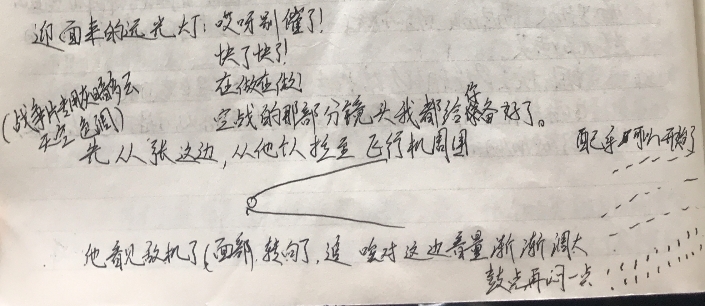 迎面来的远光灯:哎呀别催了!
快了快了!
在做在做!
空战的那部分镜头我都给你备好了。
(战争片专用
天空色调)
先从张这边,从他个人拉至飞行机周围
配乐可以开始了
他看见敌机了(面部,转向了,追 唉对这边音量渐渐调大
鼓点再闷一点